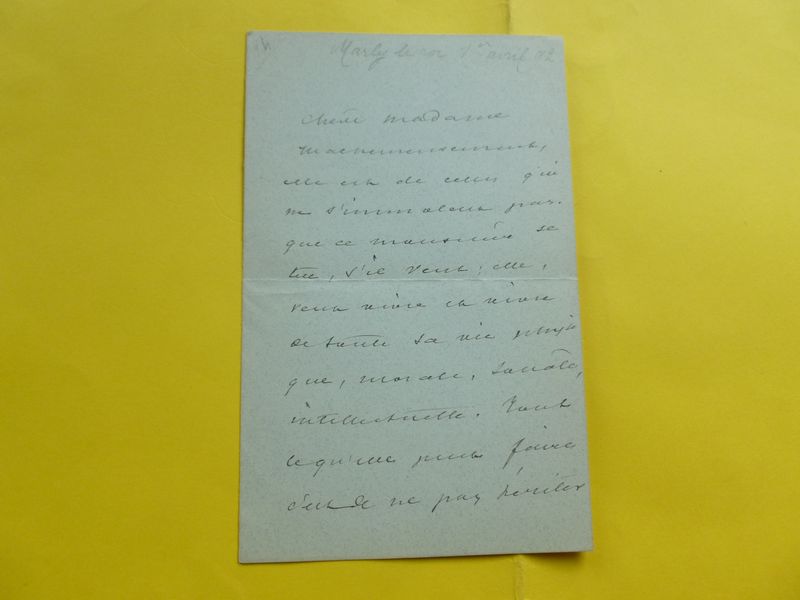 Marly le roi 1er avril 92
Chère madame
Malheureusement,
elle est de celles qui
ne s'immolent pas.
que ce monsieur se
tue, s'il veut; elle,
veut vivre et vivre
de toute sa vie physi
que, morale, sociale,
intellectuelle. Tout
ce qu'elle peut faire
c'est de ne pas hériter